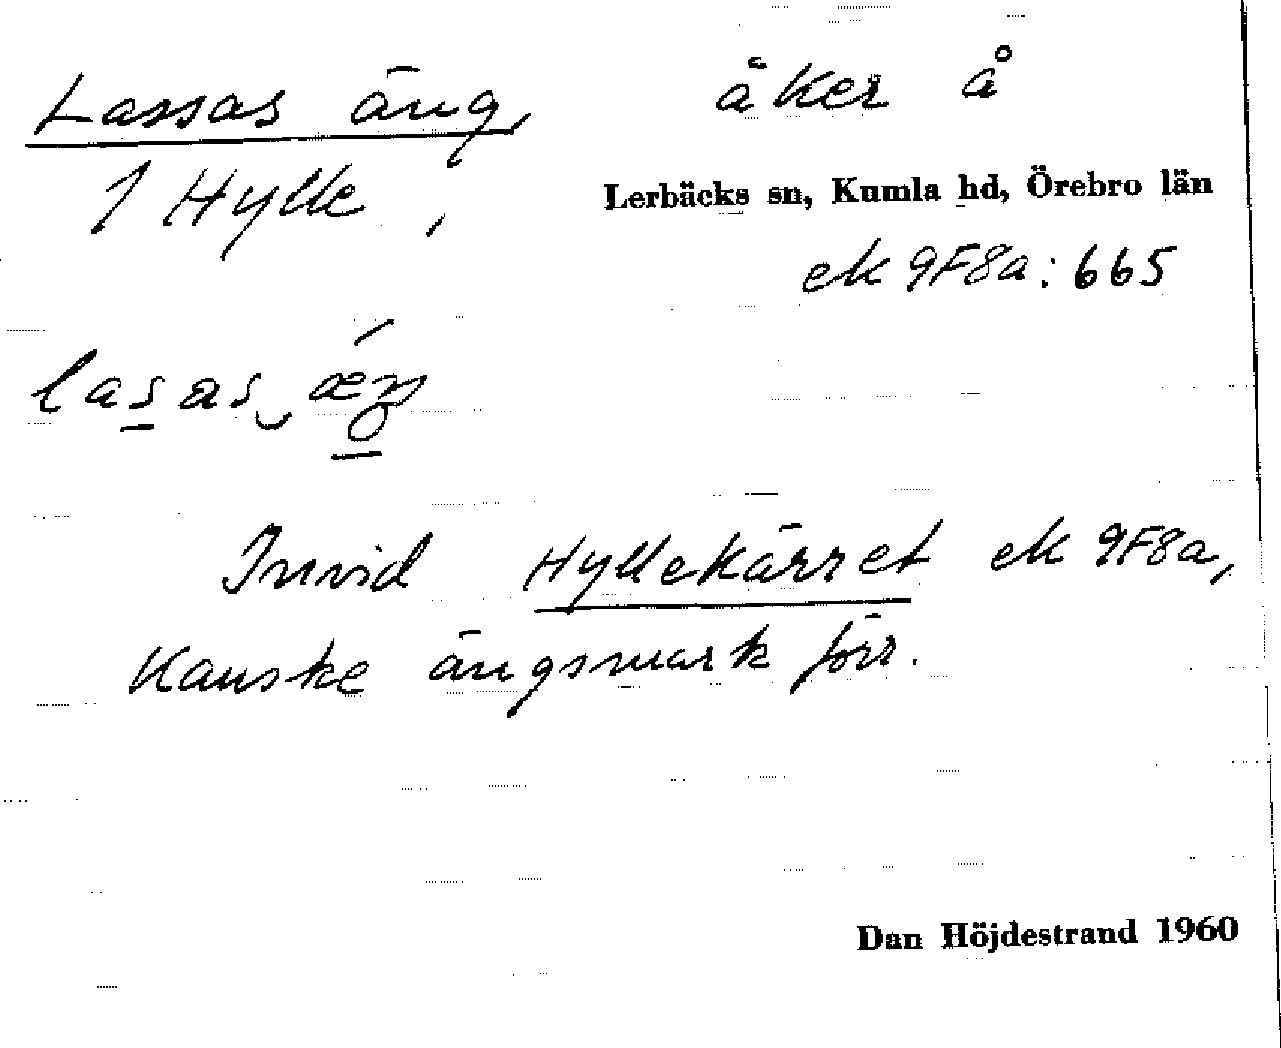 Lassas äng, åker å
1 Hylle,
Lerbäcks sn, Kumla hd, Örebro län
ek 9F8a: 665
lasas äŋ
Invid Hyllekärret ek 9F8a,
Kanske ängsmark förr.
Dan Höjdestrand 1960